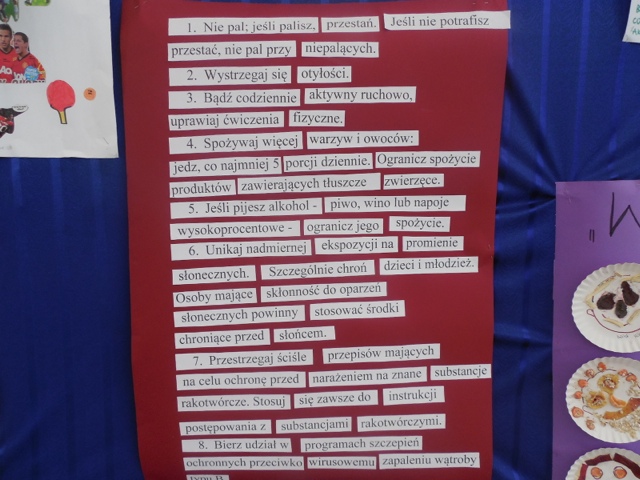 1. Nie pal; jeśli palisz, przestań. Jeśli nie potrafisz
przestać, nie pal przy niepalących.
2. Wystrzegaj się otyłości.
3. Bądź codziennie aktywny ruchowo,
uprawiaj ćwiczenia fizyczne.
4. Spożywaj więcej warzyw i owoców:
jedz, co najmniej 5 porcji dziennie. Ogranicz spożycie
produktów zawierających tłuszcze zwierzęce.
5. Jeśli pijesz alkohol - piwo, wino lub napoje
wysokoprocentowe - ogranicz jego spożycie.
6. Unikaj nadmiernej ekspozycji na promienie
słonecznych. Szczególnie chroń dzieci i młodzież.
Osoby mające skłonność do oparzeń
słonecznych powinny stosować środki
chroniące przed słońcem.
7. Przestrzegaj ściśle przepisów mających
na celu ochronę przed narażeniem na znane substancje
rakotwórcze. Stosuj się zawsze do instrukcji
postępowania z substancjami rakotwórczymi.
8. Bierz udział w programach szczepień
ochronnych przeciwko wirusowemu zapaleniu wątroby
typu B